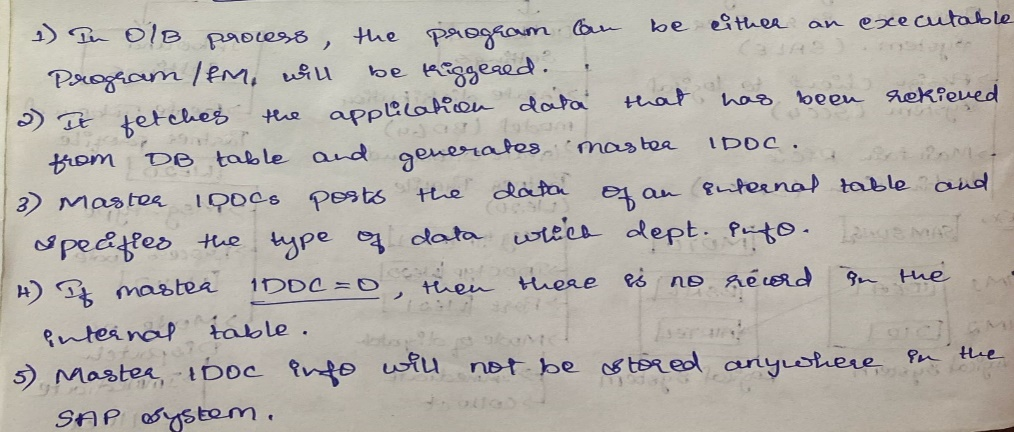 1) In O/B process, the program can be either an executable
Program/FM, will be triggered.
2) It fetches the application data that has been retrieved
from DB table and generates master IDOC.
3) Master IDOCs posts the data of an internal table and
specifies the type of data which dept. info.
4) If master IDOC = 0, then there is no record in the
internal table.
5) Master IDOC info will not be stored anywhere in the
SAP system.